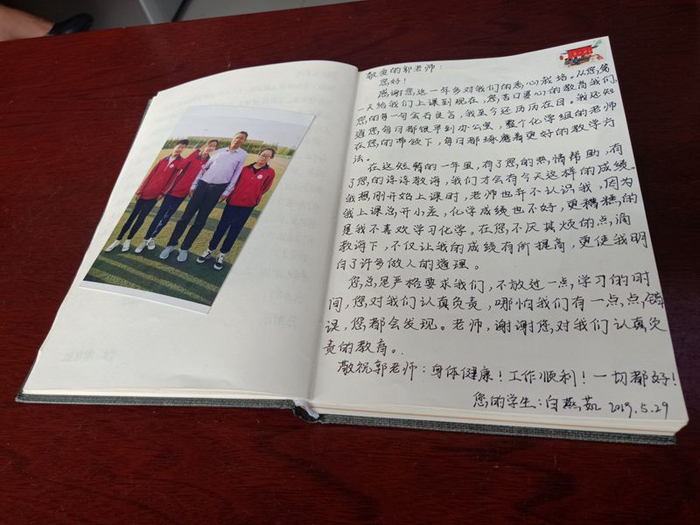 敬爱的郭老师：
您好！
感谢您这一年多对我们的悉心栽培。从您第
一天给我们上课到现在，您苦口婆心的教育我们，
您的每一句金石良言，我至今还历历在目。我还知
道您每日都很早到办公室，整个化学组的老师
在您的带领下，每日都琢磨着更好的教学方
法。
在这短暂的一年里，有了您的热情帮助，有
了您的谆谆教诲，我们才会有今天这样的成绩。
我想刚开始上课时，老师也并不认识我，因为
我上课总开小差，化学成绩也不好，更糟糕的
是我不喜欢学习化学。在您不厌其烦的点滴
教诲下，不仅让我的成绩有所提高，更使我明
白了许多做人的道理。
您总是严格要求我们，不放过一点学习的时
间，您对我们认真负责，哪怕我们有一点点错
误，您都会发现。老师，谢谢您对我们认真负
责的教育。
敬祝郭老师：身体健康！工作顺利！一切都好！
您的学生：白燕茹 2019.5.29